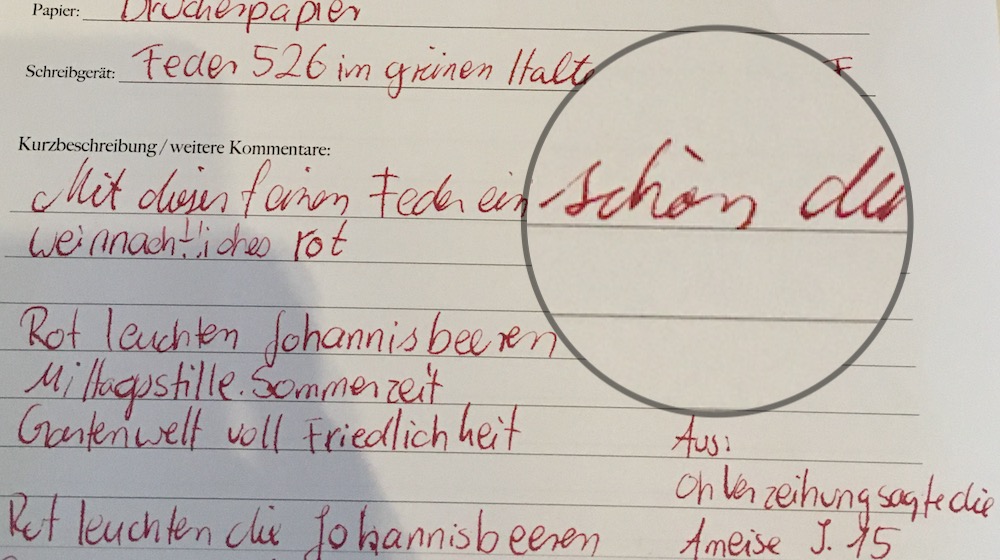 Papier: Druckerpapier
Schreibgerät: Feder 526 im grünen Halte F
Kurzbeschreibung / weitere Kommentare:
Mit dieser feinen Feder ein schön
weinnachtliches rot
Rot leuchten Johannisbeeren
Mittagsstille. Sommerzeit
Gartenwelt voll Friedlichkeit
Aus:
Oh Verzeihung sagte die
Rot leuchten die Johannisbeeren Ameise S. 15